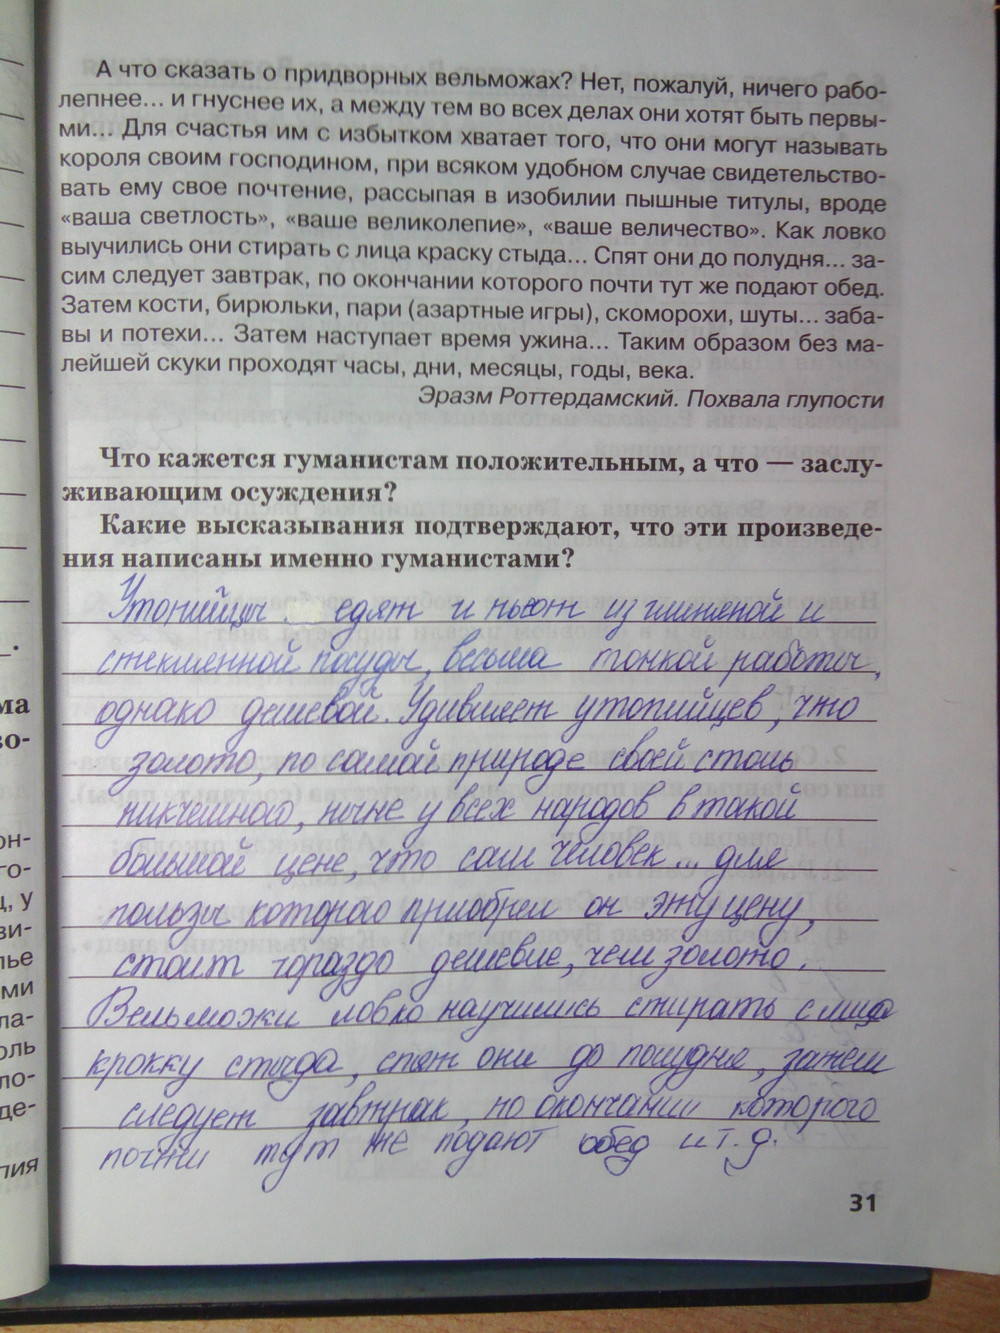 А что сказать о придворных вельможах? Нет, пожалуй, ничего рабо-
лепнее... и гнуснее их, а между тем во всех делах они хотят быть первы-
ми... Для счастья им с избытком хватает того, что они могут называть
короля своим господином, при всяком удобном случае свидетельство-
вать ему свое почтение, рассыпая в изобилии пышные титулы, вроде
«ваша светлость», «ваше великолепие», «ваше величество». Как ловко
выучились они стирать с лица краску стыда... Спят они до полудня... за-
сим следует завтрак, по окончании которого почти тут же подают обед.
Затем кости, бирюльки, пари (азартные игры), скоморохи, шуты... заба-
вы и потехи... Затем наступает время ужина... Таким образом без ма-
лейшей скуки проходят часы, дни, месяцы, годы, века.
Эразм Роттердамский. Похвала глупости
Что кажется гуманистам положительным, а что — заслу-
живающим осуждения?
Какие высказывания подтверждают, что эти произведе-
ния написаны именно гуманистами?
Утопийцы едят и пьют из глиняной и
стеклянной посуды, весьма тонкой работы,
однако дешевой. Удивляет утопийцев, что
золото, по самой природе своей столь
никчемного, ныне у всех народов в такой
большой цене, что сам человек... для
пользы которого приобрел он эту цену,
стоит гораздо дешевле, чем золото.
Вельможи ловко научились стирать с лица
крокку стыда, спят они до полудня, затем
следует завтрак, по окончании которого
почти тут же подают обед и т. д.
31
ма
во-
он-
го-
ц, у
ви-
лье
ми
ла-
оль
ло-
де-
пия